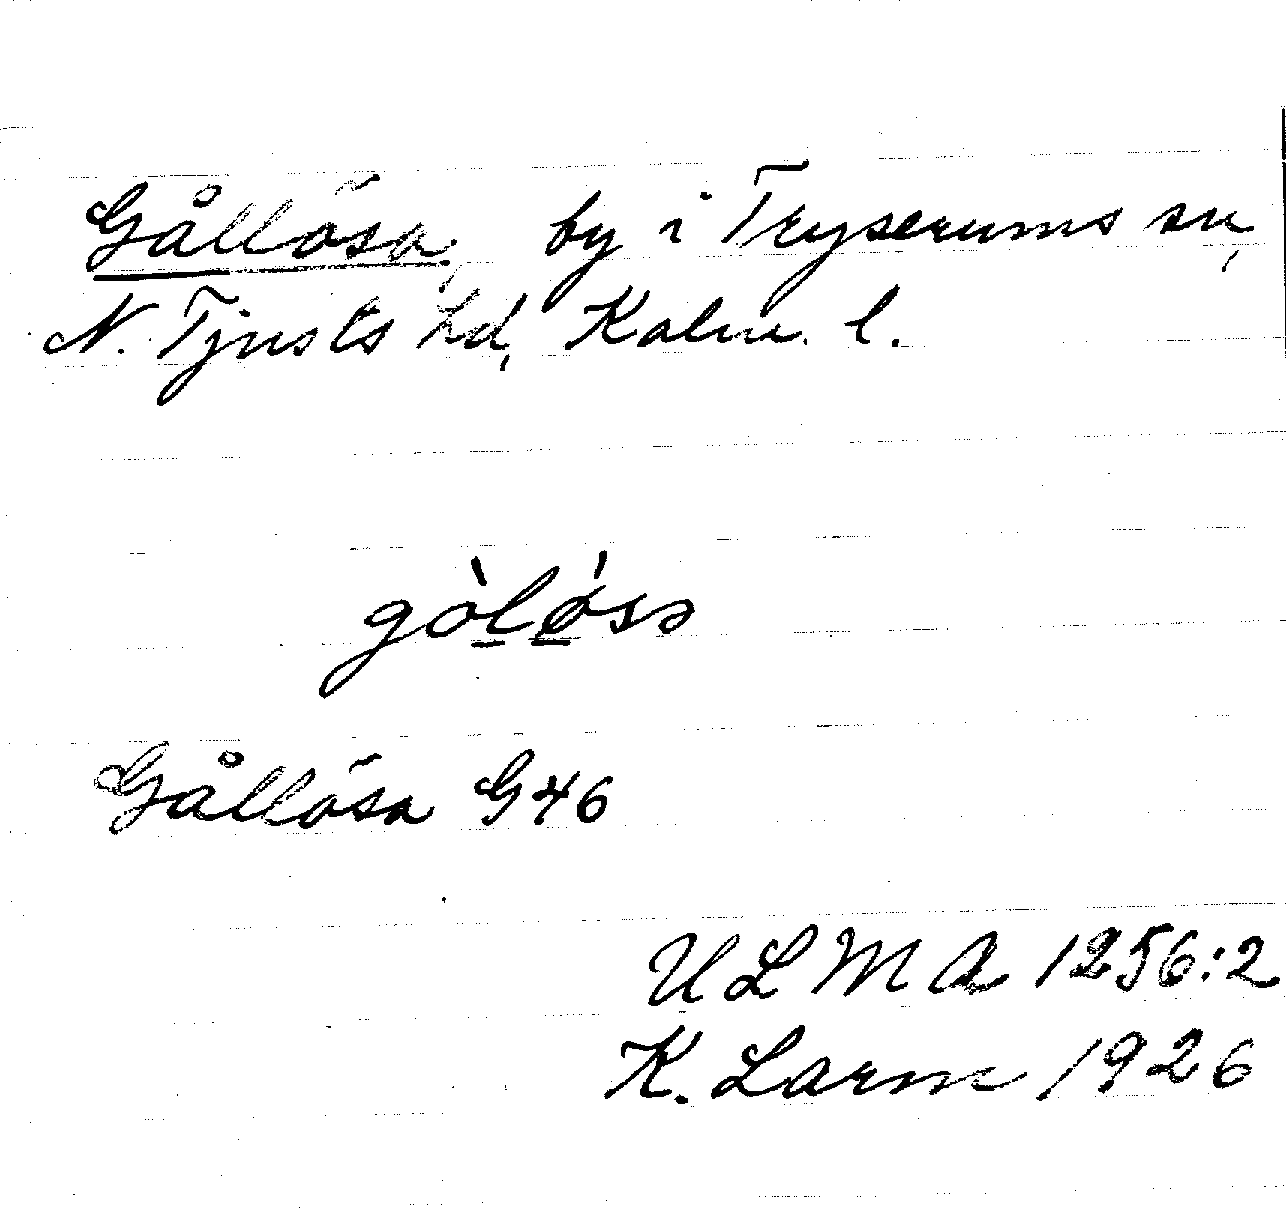 Gållösa, by i Tryserums sn,
N. Tjusts hd, Kalm. l.
gòlø̀sə
Gållösa G46
ULMA 1256:2
K. Larm 1926